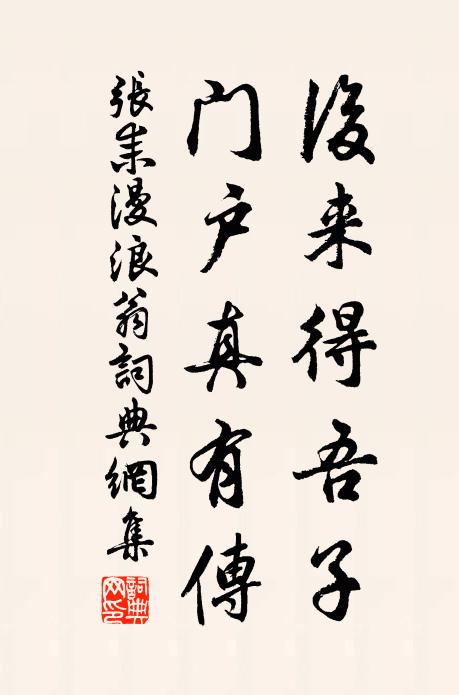 後来得吾子
门户真有傳
張耒漫浪翁詞典網集
詞典网印